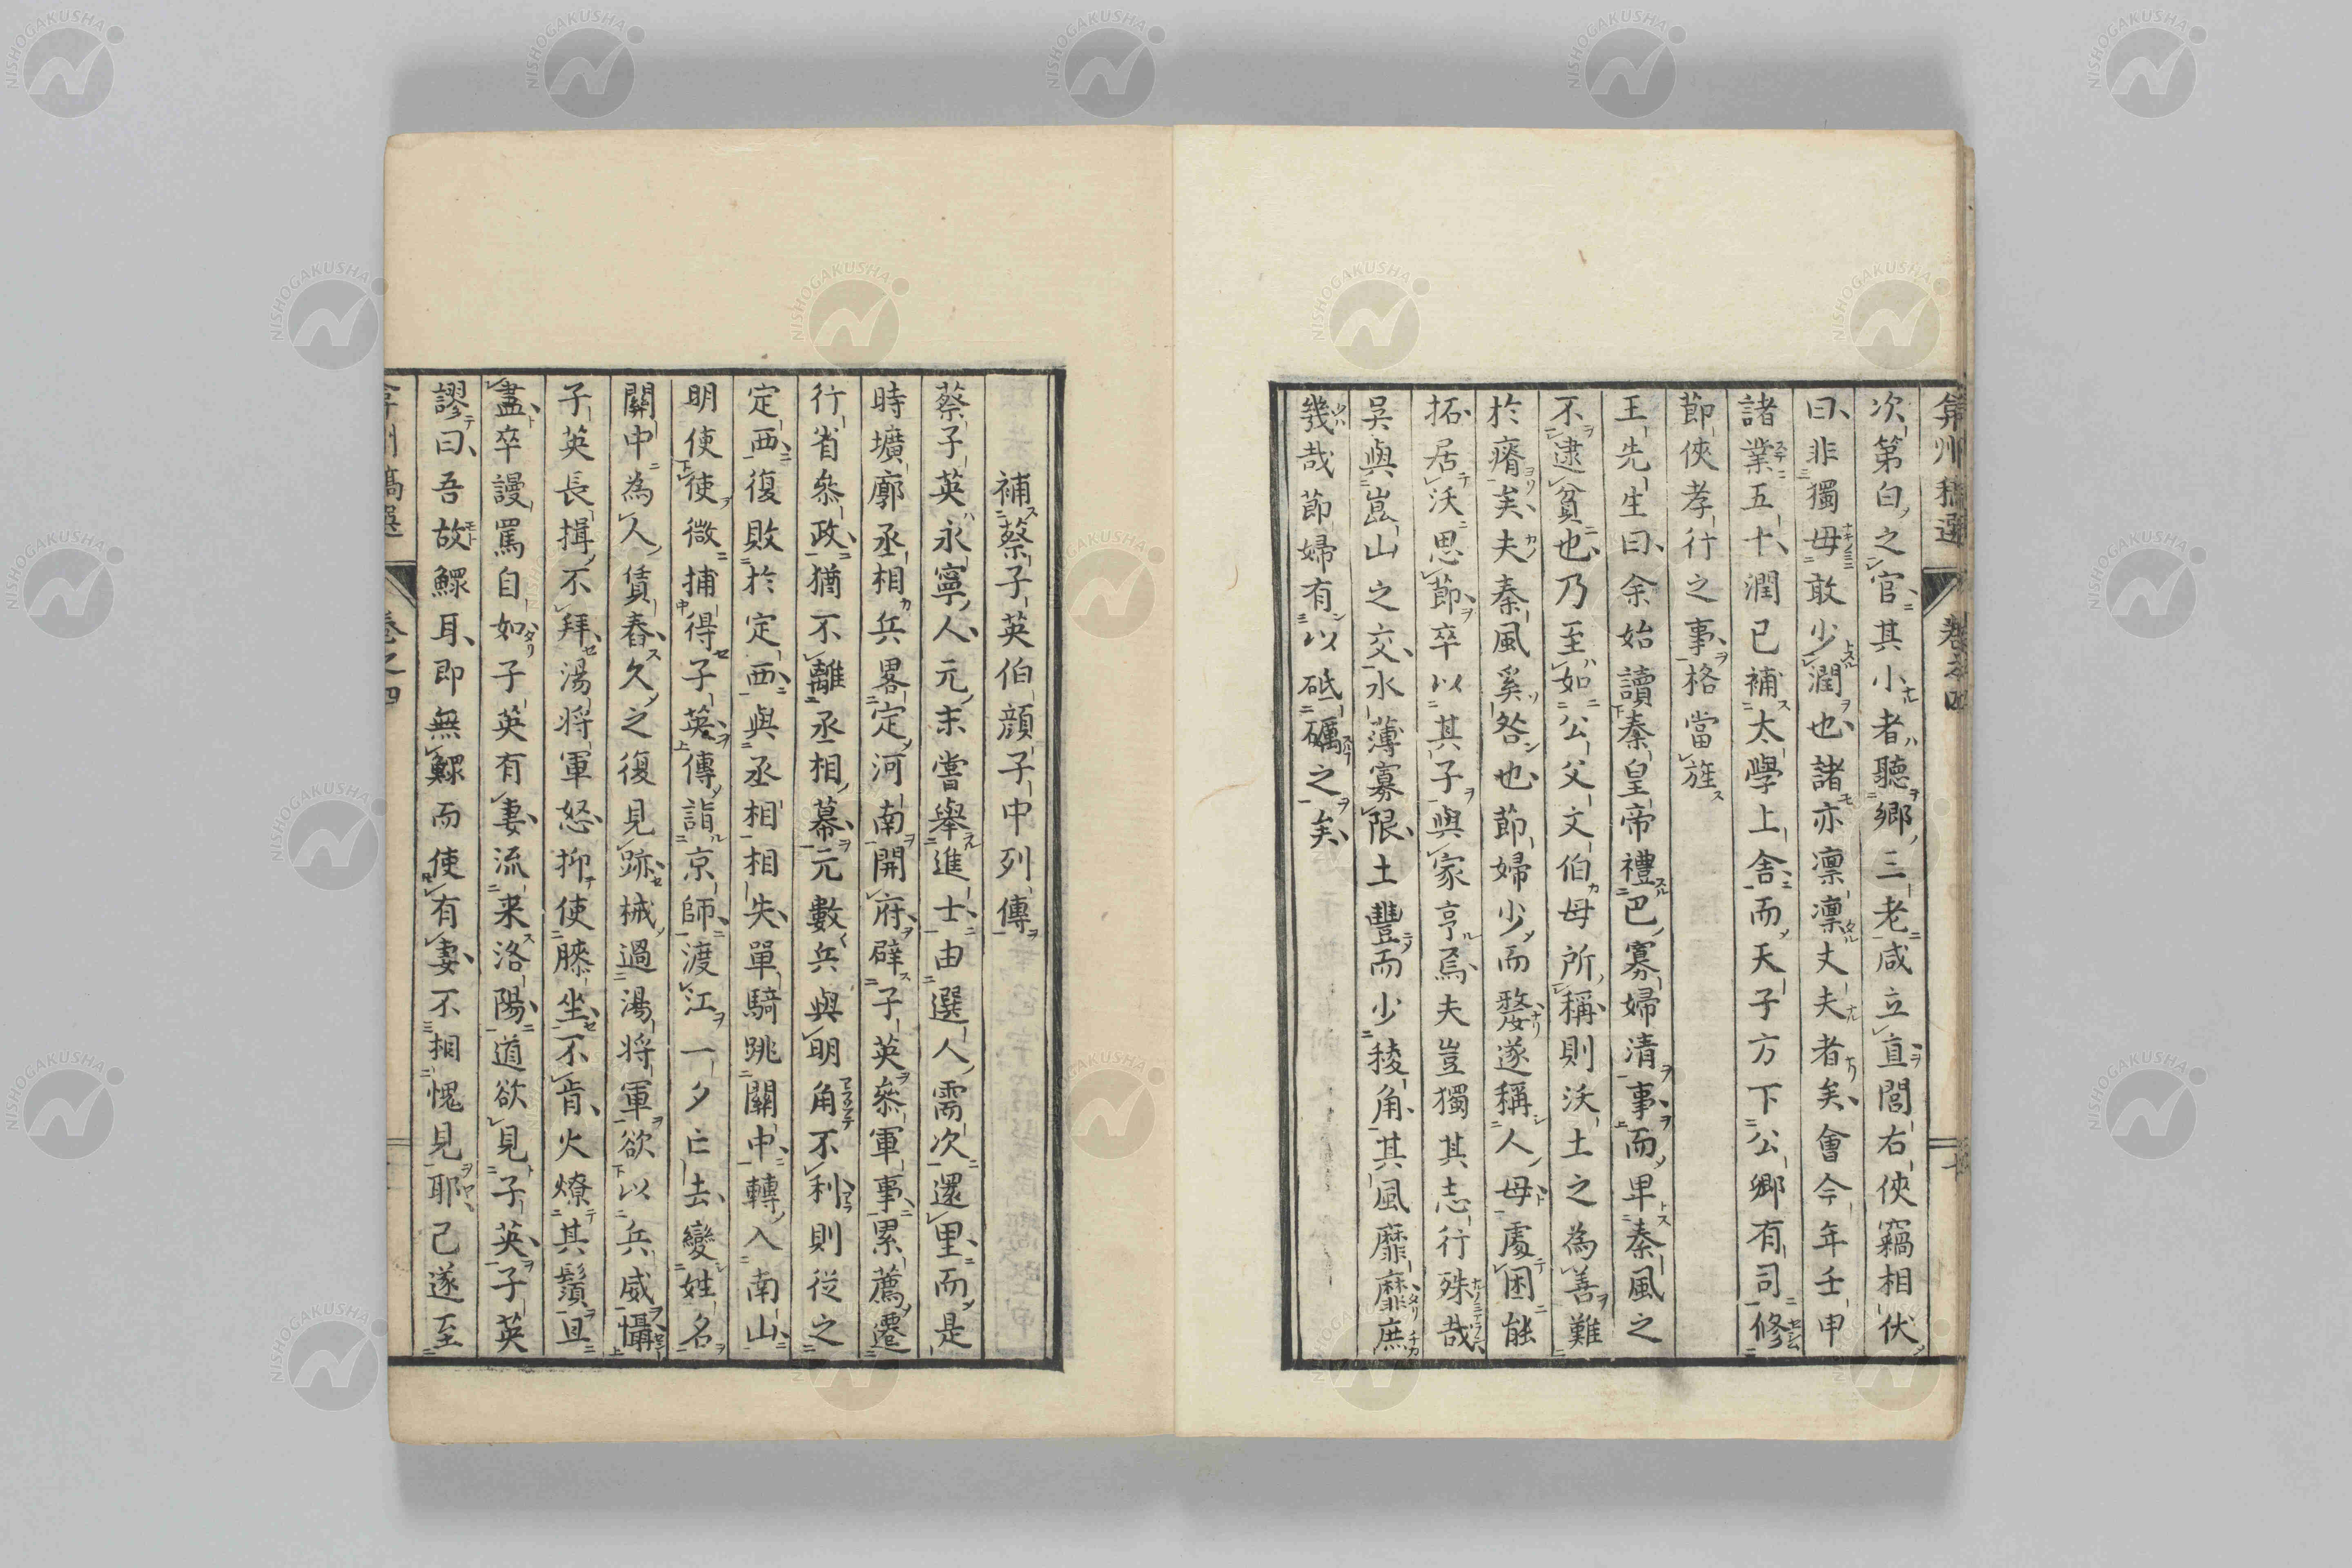 弇州稿選 卷之四
次第白之官其小者聽鄉三老咸立直閭右俠竊相伏
曰非獨毋敢少潤也諸亦凛凛丈夫者矣會今年壬申
諸業五十潤已補太學上舍而天子方下公鄉有司修
節俠孝行之事格當旌
王先生曰余始讀秦皇帝禮巴寡婦清事而卑秦風之
不逮貧也乃至如公父文伯母所稱則沃土之為善難
於瘠矣夫秦風奚咎也節婦少而嫠遂稱人母處困能
拓居沃思節卒以其子與家亨焉夫豈獨其志行殊哉
吳與崑山之交水薄寡限土豐而少稜角其風靡靡庶
幾哉節婦有以砥礪之矣
補蔡子英伯顔子中列傳
蔡子英永寧人元末嘗舉進士由選人需次還里而是
時壙廓丞相兵畧定河南開府辟子英叅軍事累薦遷
行省叅政猶不離丞相幕元數兵與明角不利則從之
定西復敗於定西與丞相相失單騎跳關中轉入南山
明使使微捕得子英傳詣京師渡江一夕亡去變姓名
關中為人賃舂久之復見跡械過湯將軍欲以兵威懾
子英長揖不拜湯將軍怒抑使膝坐不肯火燎其鬚且
盡卒謾罵自如子英有妻流来洛陽道欲見子英子英
謬曰吾故鰥耳即無鰥而使有妻不相愧見耶已遂至
弇州稿選 卷之四